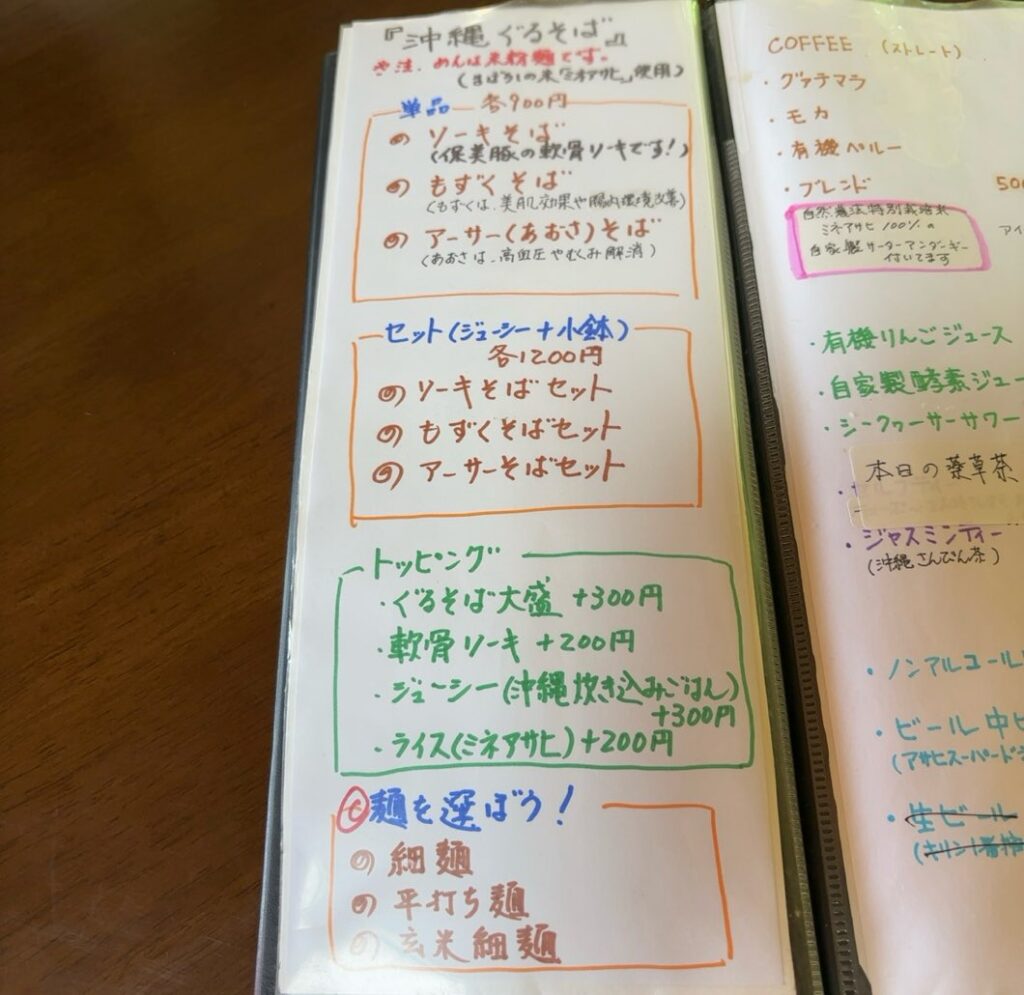 『沖縄ぐるそば』
めんは米粉麺です。
(まぼろしの米「ミネアサヒ」使用)
単品 各900円
ソーキそば
(保美豚の軟骨ソーキです!)
もずくそば
(もずくは、美肌効果や腸内環境改善)
アーサー(あおさ)そば
(あおさは、高血圧やむくみ解消)
セット(ジューシー+小鉢)
各1200円
ソーキそばセット
もずくそばセット
アーサーそばセット
トッピング
・ぐるそば大盛 +300円
・軟骨ソーキ +200円
・ジューシー(沖縄炊き込みごはん)
+300円
・ライス(ミネアサヒ)+200円
麺を選ぼう!
細麺
平打ち麺
玄米細麺
COFFEE (ストレート)
・グァテマラ
・モカ
・有機ペルー
・ブレンド 500
自然農法特別栽培米
ミネアサヒ100%の
自家製サーターアンダーギー
付いてます
アイ
・有機りんごジュース
・自家製酵素ジュー
・シークヮーサーサワー
本日の薬草茶
・ジャスミンティー
(沖縄さんぴん茶)
・ノンアルコール
・ビール 中ビ
(アサヒスーパード
・生ビール